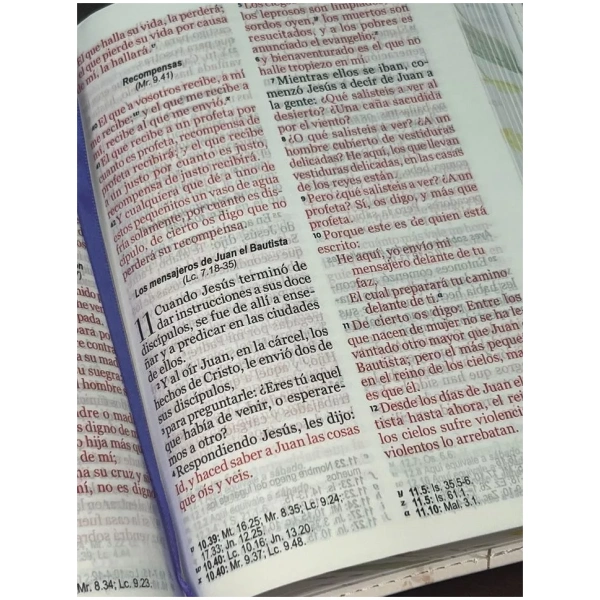 pada.
su mad
suegra
hombre
dre o mad
digno de m
o hija más q
de mí;
na su cruz y si
mí, no es digno
Mr. 8.34; Lc. 9.23.
El que halla su vida, la perderá;
el que pierde su vida por causa
de mí, la hallará.
Recompensas
(Mr. 9.41)
40 El que a vosotros recibe, a mí
me recibe; y el que me recibe a
mí, recibe al que me envió.
El que recibe a un profeta por
cuanto es profeta, recompensa de
profeta recibirá; y el que recibe
un justo por cuanto es justo,
recompensa de justo recibirá.
Y cualquiera que dé a uno de
estos pequeñitos un vaso de agua
fría solamente, por cuanto es dis-
cípulo, de cierto os digo que no
perderá su recompensa.
Los mensajeros de Juan el Bautista
(Lc. 7.18-35)
11 Cuando Jesús terminó de
dar instrucciones a sus doce
discípulos, se fue de allí a ense-
ñar y a predicar en las ciudades
de ellos.
2 Y al oír Juan, en la cárcel, los
hechos de Cristo, le envió dos de
sus discípulos,
3 para preguntarle: ¿Eres tú aquel
que había de venir, o esperare-
mos a otro?
4 Respondiendo Jesús, les dijo:
Id, y haced saber a Juan las cosas
que oís y veis.
v 10.39: Mt. 16.25; Mr. 8.35; Lc. 9.24;
17.33; Jn. 12.25.
10.40: Lc. 10.16; Jn. 13.20.
x 10.40: Mr. 9.37; Lc. 9.48.
5 Los ciegos
los leprosos son limpiados, los
sordos oyen, los muertos son
resucitados, y a los pobres es
anunciado el evangelio;
6 y bienaventurado es el que no
halle tropiezo en mí.
7 Mientras ellos se iban, co-
menzó Jesús a decir de Juan a
la gente: ¿Qué salisteis a ver al
desierto? ¿Una caña sacudida
por el viento?
8 ¿O qué salisteis a ver? ¿A un
hombre cubierto de vestiduras
delicadas? He aquí, los que llevan
vestiduras delicadas, en las casas
de los reyes están.
9 Pero ¿qué salisteis a ver? ¿A un
profeta? Sí, os digo, y más que
profeta.
10 Porque este es de quien está
escrito:
He aquí, yo envío mi
mensajero delante de tu
faz,
El cual preparará tu camino
delante de ti.
11 De cierto os digo: Entre los
que nacen de mujer no se ha le-
vantado otro mayor que Juan
Bautista; pero el más peque
en el reino de los cielos, ma
es que él.
12 Desde los días de Juan el
tista hasta ahora, el rei
los cielos sufre violenci
violentos lo arrebatan.
y 11.5: Is. 35.5-6.
z 11.5: Is. 61.1.
a 11.10: Mal. 3.1.